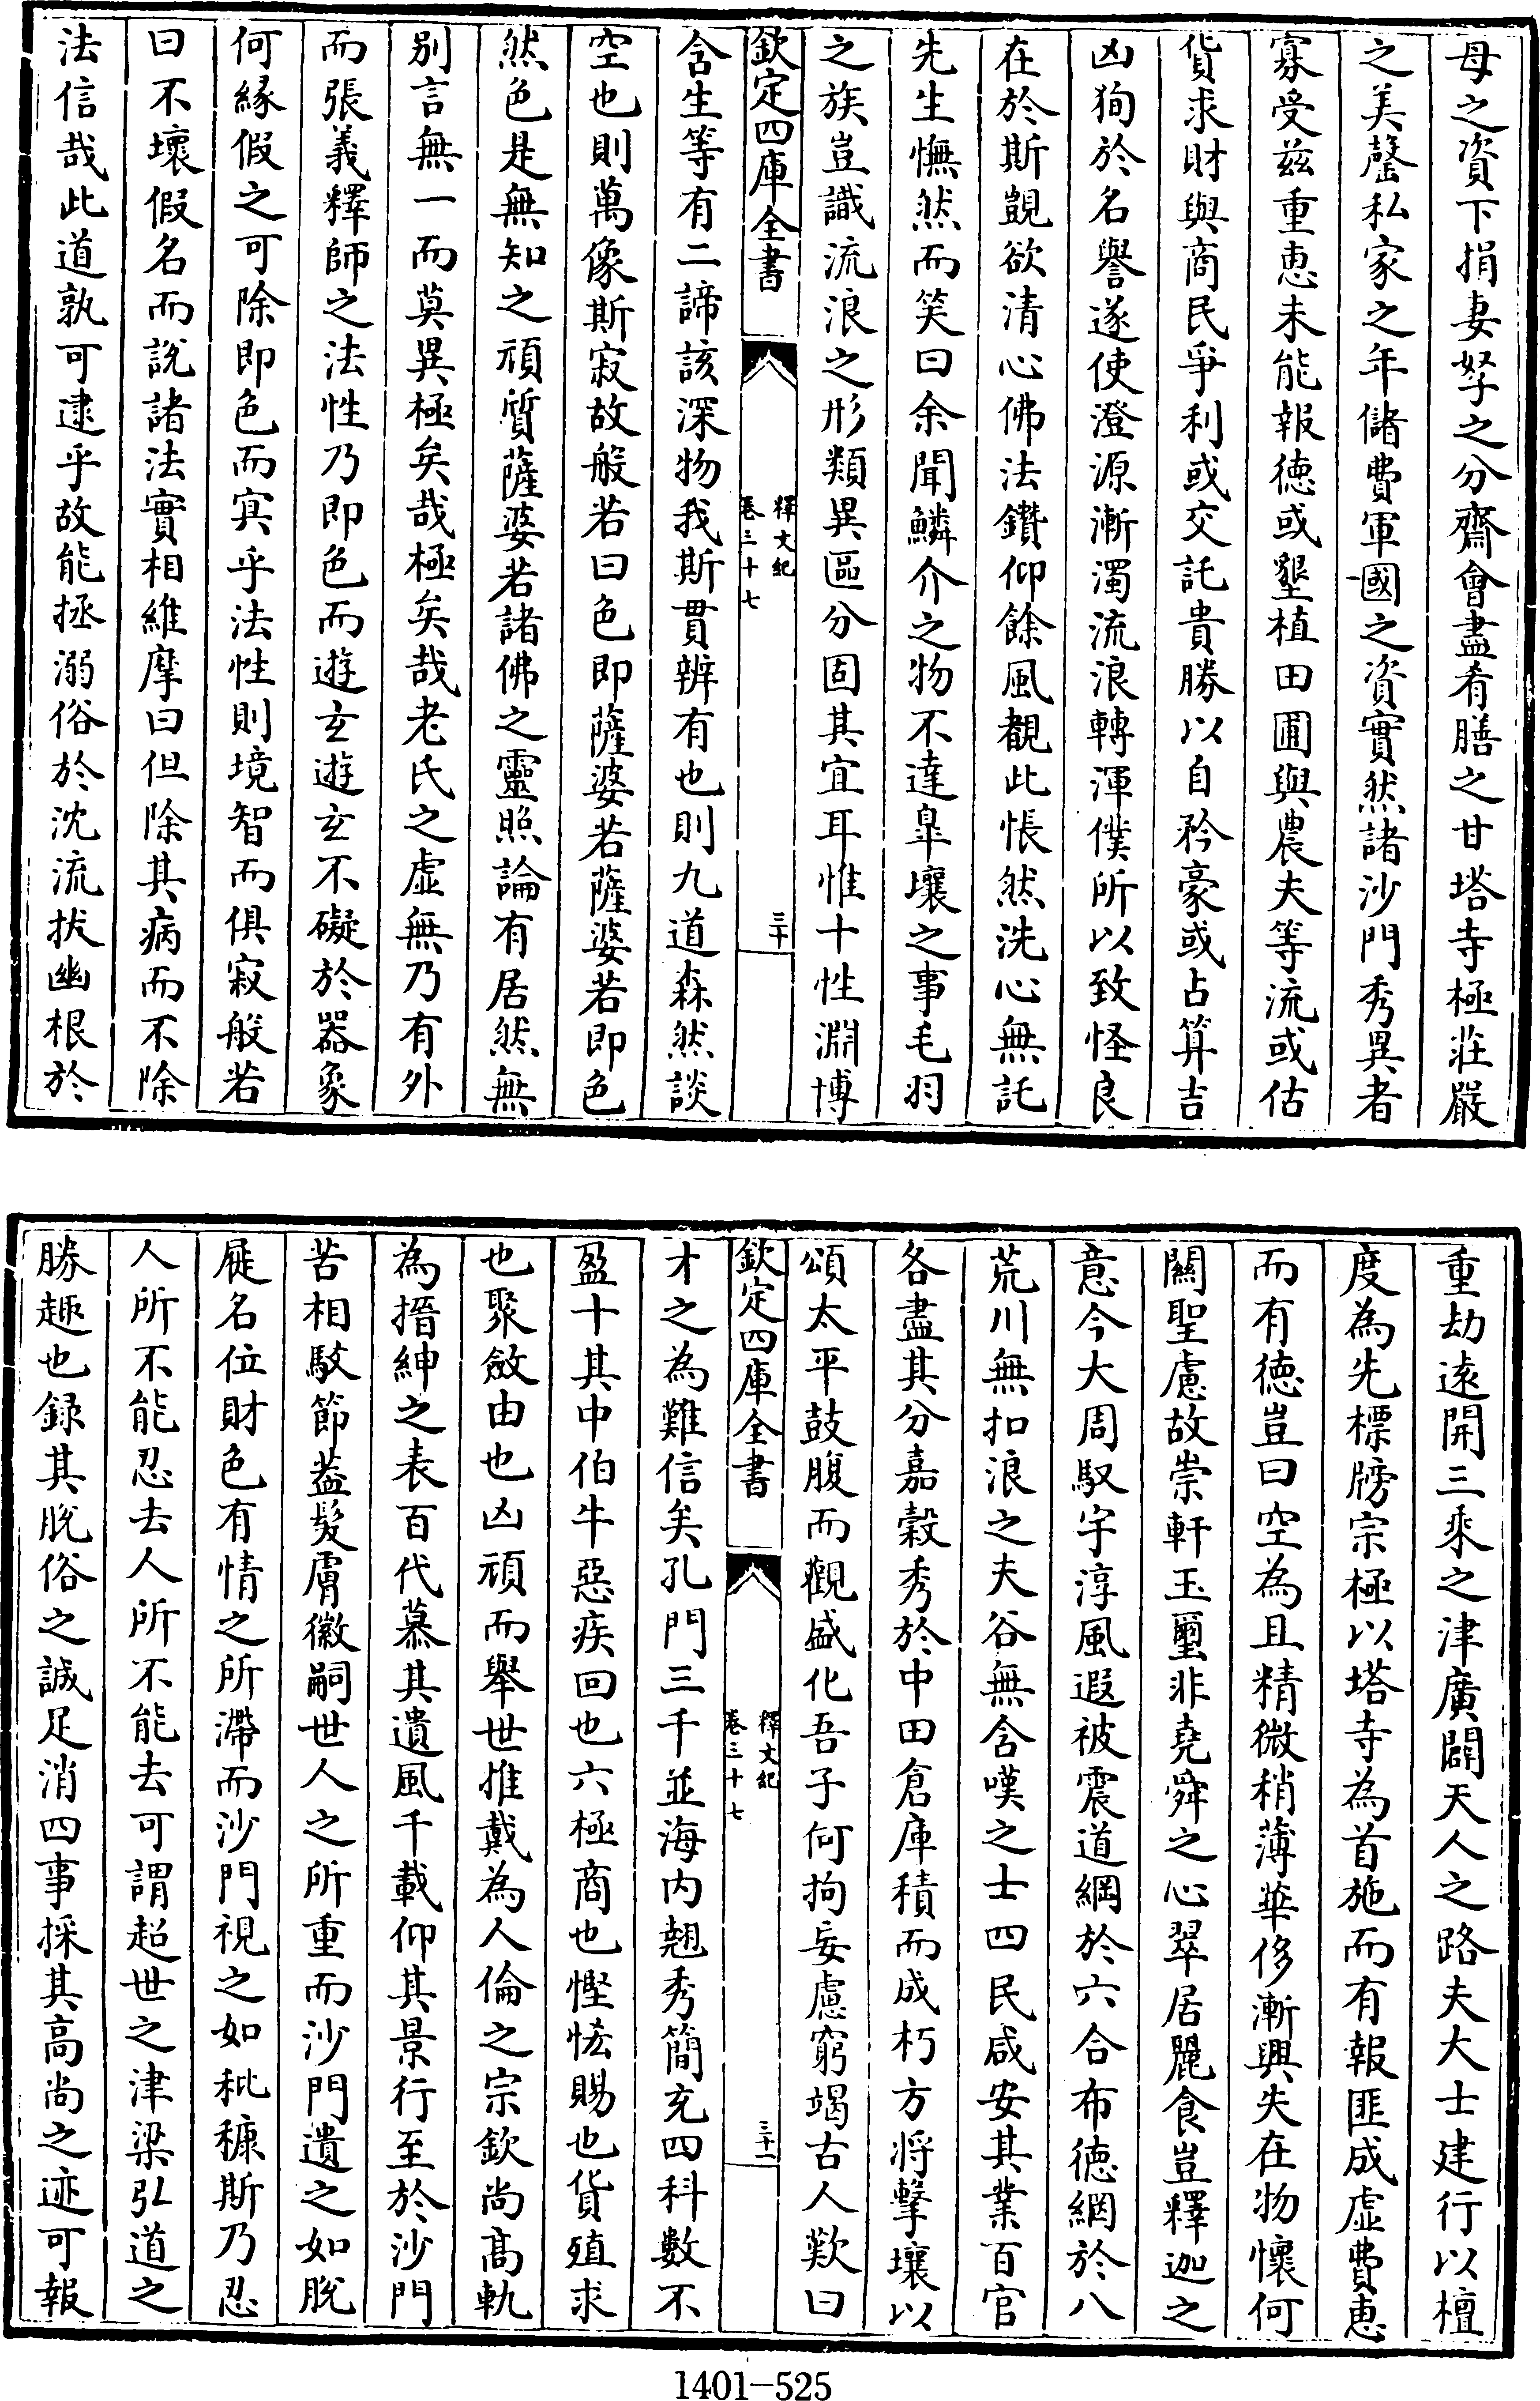 母之資下捐妻孥之分齋會盡肴膳之甘塔寺極莊嚴
之美罄私家之年儲費軍國之資實然諸沙門秀異者
寡受兹重惠未能報德或墾植田圃與農夫等流或估
貨求財與商民爭利或交託貴勝以自矜豪或占算吉
凶狥於名譽遂使澄源漸濁流浪轉渾僕所以致怪良
在於斯覬欲清心佛法鑽仰餘風覩此悵然洗心無託
先生憮然而笑曰余聞鱗介之物不達臯壤之事毛羽
之族豈識流浪之形類異區分固其宜耳惟十性淵博
欽定四庫全書
釋文紀
卷三十七
三十
含生等有二諦該深物我斯貫辨有也則九道森然談
空也則萬像斯寂故般若曰色即薩婆若薩婆若即色
然色是無知之頑質薩婆若諸佛之靈照論有居然無
别言無一而莫異極矣哉極矣哉老氏之虛無乃有外
而張義釋師之法性乃即色而遊玄遊玄不礙於器象
何緣假之可除即色而㝠乎法性則境智而俱寂般若
曰不壞假名而說諸法實相維摩曰但除其病而不除
法信哉此道孰可逮乎故能拯溺俗於沈流拔幽根於
重劫遠開三乘之津廣闢天人之路夫大士建行以檀
度為先標牓宗極以塔寺為首施而有報匪成虛費惠
而有德豈曰空為且精微稍薄華侈漸興失在物懷何
關聖慮故崇軒玉璽非堯舜之心翠居麗食豈釋迦之
意今大周馭宇淳風遐被震道綱於六合布德網於八
荒川無扣浪之夫谷無含嘆之士四民咸安其業百官
各盡其分嘉穀秀於中田倉庫積而成朽方將擊壤以
頌太平鼓腹而觀盛化吾子何拘妄慮窮竭古人歎曰
欽定四庫全書
釋文紀
卷三十七
三十一
才之為難信矣孔門三千並海内翹秀簡充四科數不
盈十其中伯牛惡疾回也六極商也慳恡賜也貨殖求
也聚斂由也凶頑而舉世推戴為人倫之宗欽尚高軌
為搢紳之表百代慕其遺風千載仰其景行至於沙門
苦相駮節葢髮膚徽嗣世人之所重而沙門遺之如脫
屣名位財色有情之所滯而沙門視之如秕糠斯乃忍
人所不能忍去人所不能去可謂超世之津梁弘道之
勝趣也録其脫俗之誠足消四事採其高尚之迹可報
1401-525